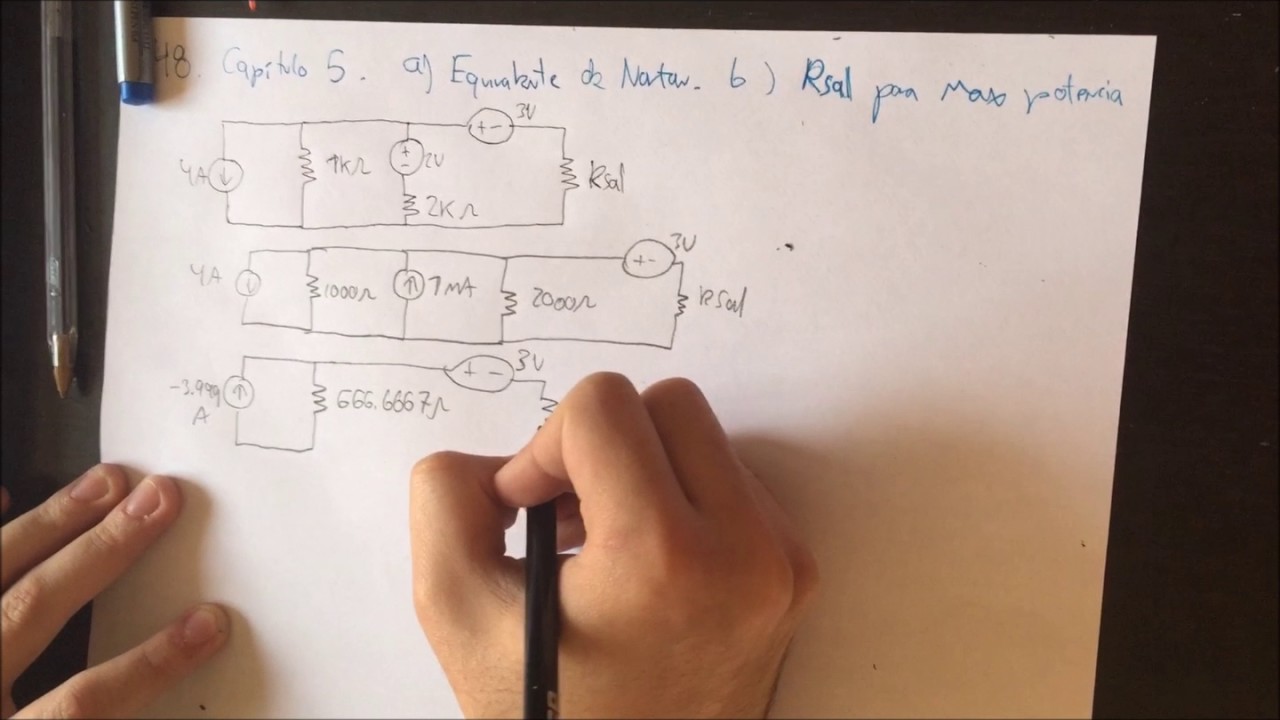 48. Capítulo 5. a) Equivalente de Norton. b) Rsal para Max potencia
3V
4A
1KΩ
+
-
2V
+ -
Rsal
2KΩ
3V
4A
1000Ω
1mA
2000Ω
+ -
Rsal
3V
-3.999
A
666.6667Ω
+ -